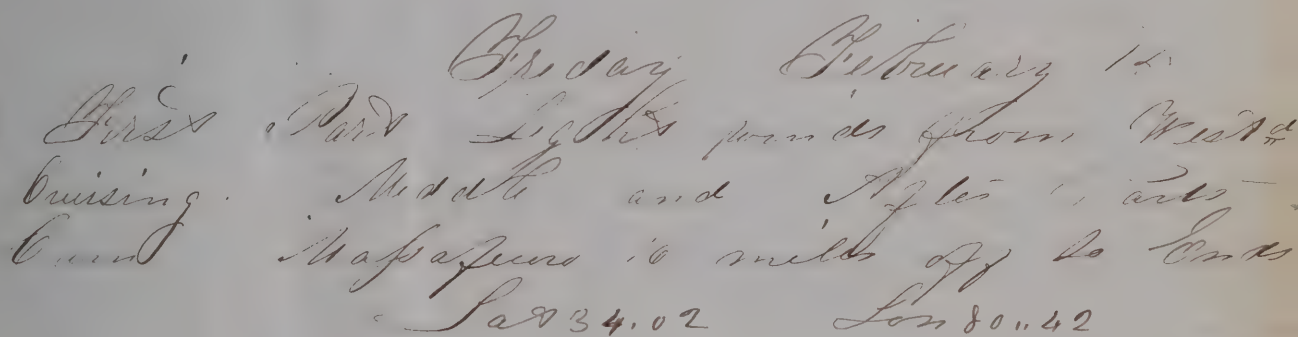 Friday February 15
First Part Lights winds from Westd
Cruising. Middle and After Parts
Massafuero 10 miles off So Ends
Lat 34.02 Lon 80..42